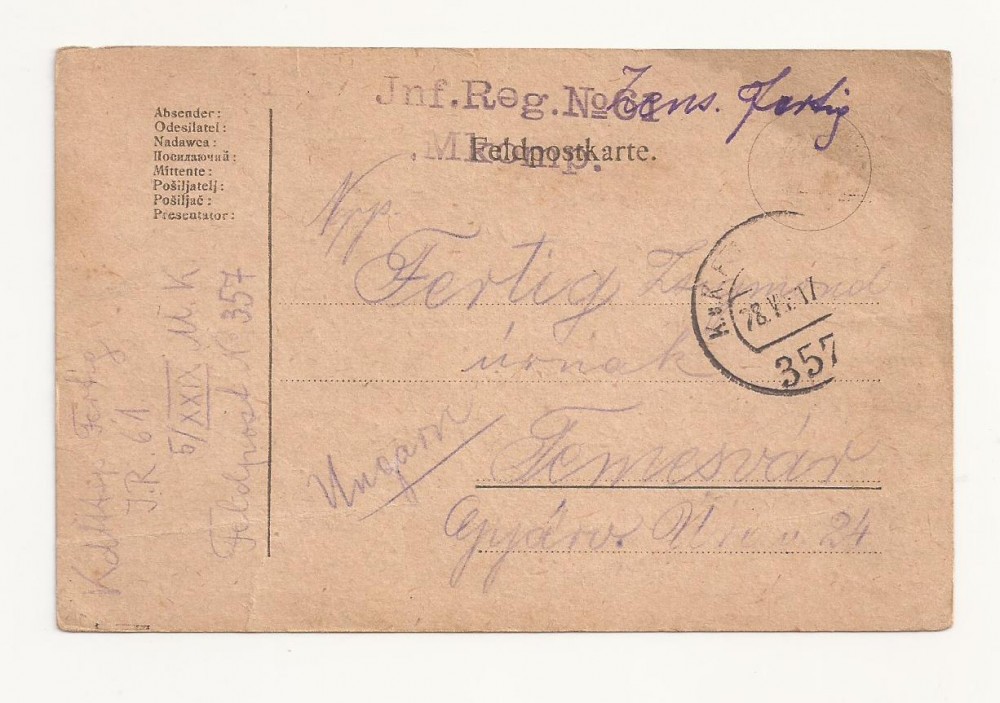 Jnf.Reg.No61
Zens. Fertig
Feldpostkarte.
Absender:
Odesílatel:
Nadawca:
Посилаючий:
Mittente:
Pošiljatelj:
Pošiljač:
Presentator:
Npp.
Fertig Zsigmond
úrnak
Temesvár
Ungarn
Gyárv. 24
Fertig
J.R. 61
5/XXIX M.K.
Feldpost No 357
28.VI.17
357